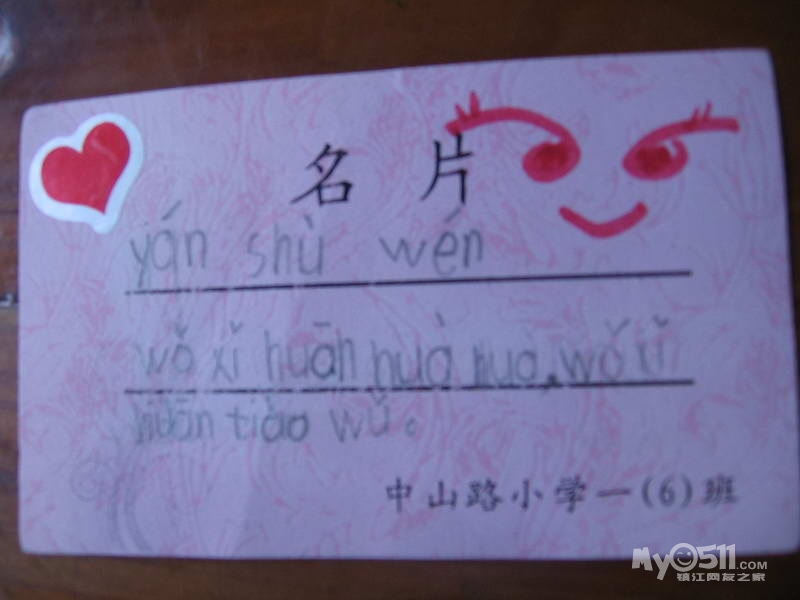 名片
yán shù wén
wǒ xǐ huān huà huà, wǒ xǐ
huān tiào wǔ。
中山路小学一(6)班
My0511.COM
镇江网友之家